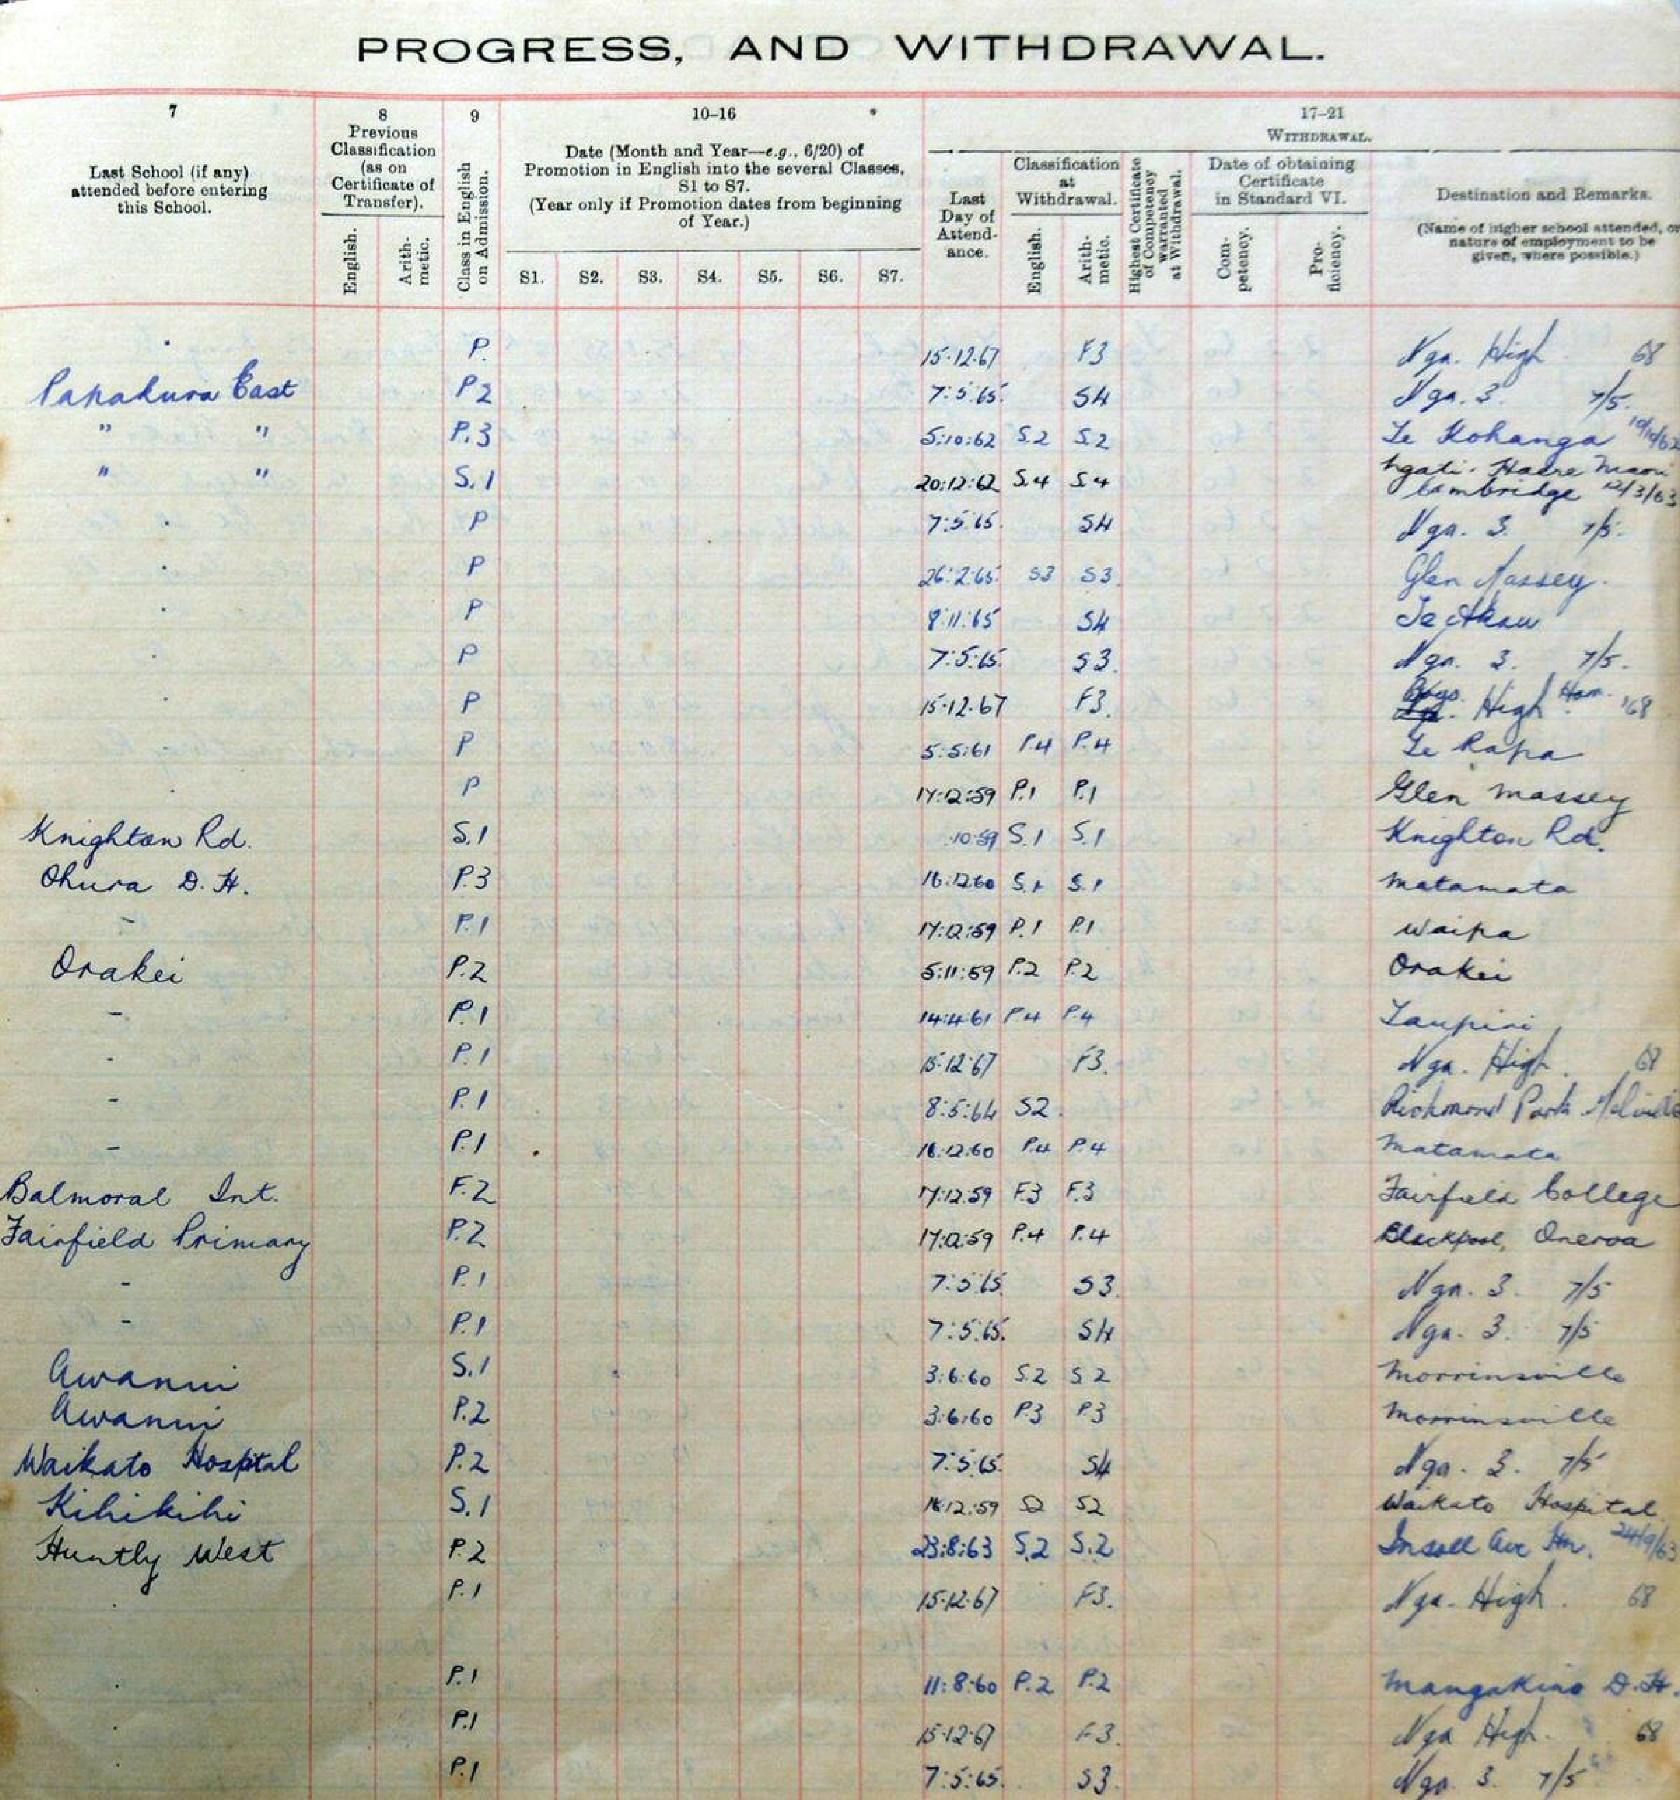 PROGRESS, AND WITHDRAWAL.
7
Last School (if any)
attended before entering
this School.
8
Previous
Classification
(as on
Certificate of
Transfer).
English.
Arith-
metic.
9
Class in English
on Admission.
10–16
Date (Month and Year—e.g., 6/20) of
Promotion in English into the several Classes,
S1 to S7.
(Year only if Promotion dates from beginning
of Year.)
S1. S2. S3. S4. S5. S6. S7.
17–21
WITHDRAWAL.
Last
Day of
Attend-
ance.
Classification
at
Withdrawal.
English.
Arith-
metic.
Highest Certificate
of Competency
warranted
at Withdrawal.
Date of obtaining
Certificate
in Standard VI.
Com-
petency.
Pro-
ficiency.
Destination and Remarks.
(Name of higher school attended, or
nature of employment to be
given, where possible.)
P. 15.12.67 F3 Nga. High 68
Papakura East P2 7:5:65. S4 Nga. 3. 7/5.
" " P.3 5:10:62 S.2 S.2 Te Kohanga
" " S.1 20:12:62 S.4 S.4 Ngati Haere Maori
Cambridge 12/3/63
P 7:5:65. S4 Nga. 3. 7/5.
P 26:2:65. S3 S3. Glen Massey.
P 8:11:65 S4 Te Akau
P 7:5:65. S3. Nga. 3. 7/5.
P 15.12.67 F3. Boys High Ham. '68
P 5:5:61 P.4 P.4 Te Rapa
P 17:12:59 P.1 P.1 Glen Massey
Knighton Rd. S.1 10:59 S.1 S.1 Knighton Rd.
Ohura D.H. P.3 16:12:60 S.1 S.1 Matamata
- P.1 17:12:59 P.1 P.1 Waipa
Orakei P.2 5:11:59 P.2 P.2 Orakei
- P.1 14:4:61 P.4 P.4 Taupiri
P.1 15.12.67 F3. Nga. High. 68
- P.1 8:5:64 S2. Richmond Park Melville
- P.1 16:12:60 P.4 P.4 Matamata
Balmoral Int. F.2 17:12:59 F.3 F.3 Fairfield College
Fairfield Primary P.2 17:12:59 P.4 P.4 Blackpool, Oneroa
- P.1 7:5:65 S3. Nga. 3. 7/5
- P.1 7:5:65. S4 Nga. 3. 7/5
Awanui S.1 3:6:60 S.2 S2 Morrinsville
Awanui P.2 3:6:60 P3 P3 Morrinsville
Waikato Hospital P.2 7:5:65. S4 Nga. 3. 7/5
Kihikihi S.1 16:12:59 S2 S2 Waikato Hospital
Huntly West P.2 23:8:63 S.2 S.2 Insoll Ave Hn. 24/9/63
P.1 15.12.67 F3. Nga. High. 68
P.1 11:8:60 P.2 P.2 Mangakino D.H.
P.1 15.12.67 F3. Nga High. 68
P.1 7:5:65. S3. Nga 3. 7/5